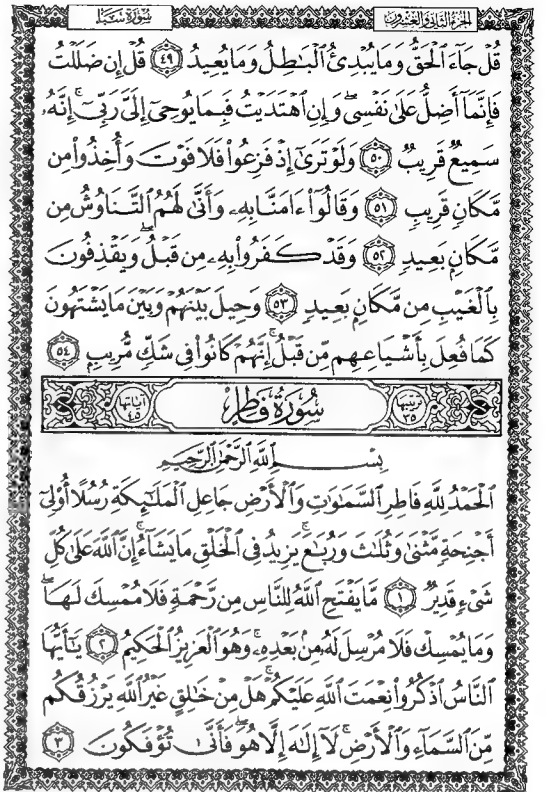 الجزء الثاني والعشرون
سورة سبإ
قُلْ جَآءَ ٱلْحَقُّ وَمَا يُبْدِئُ ٱلْبَٰطِلُ وَمَا يُعِيدُ ٤٩ قُلْ إِن ضَلَلْتُ
فَإِنَّمَآ أَضِلُّ عَلَىٰ نَفْسِىۖ وَإِنِ ٱهْتَدَيْتُ فَبِمَا يُوحِىٓ إِلَىَّ رَبِّىٓۚ إِنَّهُۥ
سَمِيعٌ قَرِيبٌ ٥٠ وَلَوْ تَرَىٰٓ إِذْ فَزِعُوا۟ فَلَا فَوْتَ وَأُخِذُوا۟ مِن
مَّكَانٍ قَرِيبٍ ٥١ وَقَالُوٓا۟ ءَامَنَّا بِهِۦ وَأَنَّىٰ لَهُمُ ٱلتَّنَاوُشُ مِن
مَّكَانٍۭ بَعِيدٍ ٥٢ وَقَدْ كَفَرُوا۟ بِهِۦ مِن قَبْلُۖ وَيَقْذِفُونَ
بِٱلْغَيْبِ مِن مَّكَانٍۭ بَعِيدٍ ٥٣ وَحِيلَ بَيْنَهُمْ وَبَيْنَ مَا يَشْتَهُونَ
كَمَا فُعِلَ بِأَشْيَاعِهِم مِّن قَبْلُۚ إِنَّهُمْ كَانُوا۟ فِى شَكٍّ مُّرِيبٍۭ ٥٤
ترتيبها ٣٥ سُورَةُ فَاطِرٍ آياتها ٤٥
بِسْمِ ٱللَّهِ ٱلرَّحْمَٰنِ ٱلرَّحِيمِ
ٱلْحَمْدُ لِلَّهِ فَاطِرِ ٱلسَّمَٰوَٰتِ وَٱلْأَرْضِ جَاعِلِ ٱلْمَلَٰٓئِكَةِ رُسُلًا أُو۟لِىٓ
أَجْنِحَةٍ مَّثْنَىٰ وَثُلَٰثَ وَرُبَٰعَۚ يَزِيدُ فِى ٱلْخَلْقِ مَا يَشَآءُۚ إِنَّ ٱللَّهَ عَلَىٰ كُلِّ
شَىْءٍ قَدِيرٌ ١ مَّا يَفْتَحِ ٱللَّهُ لِلنَّاسِ مِن رَّحْمَةٍ فَلَا مُمْسِكَ لَهَاۖ
وَمَا يُمْسِكْ فَلَا مُرْسِلَ لَهُۥ مِنۢ بَعْدِهِۦۚ وَهُوَ ٱلْعَزِيزُ ٱلْحَكِيمُ ٢ يَٰٓأَيُّهَا
ٱلنَّاسُ ٱذْكُرُوا۟ نِعْمَتَ ٱللَّهِ عَلَيْكُمْۚ هَلْ مِنْ خَٰلِقٍ غَيْرُ ٱللَّهِ يَرْزُقُكُم
مِّنَ ٱلسَّمَآءِ وَٱلْأَرْضِۚ لَآ إِلَٰهَ إِلَّا هُوَۖ فَأَنَّىٰ تُؤْفَكُونَ ٣